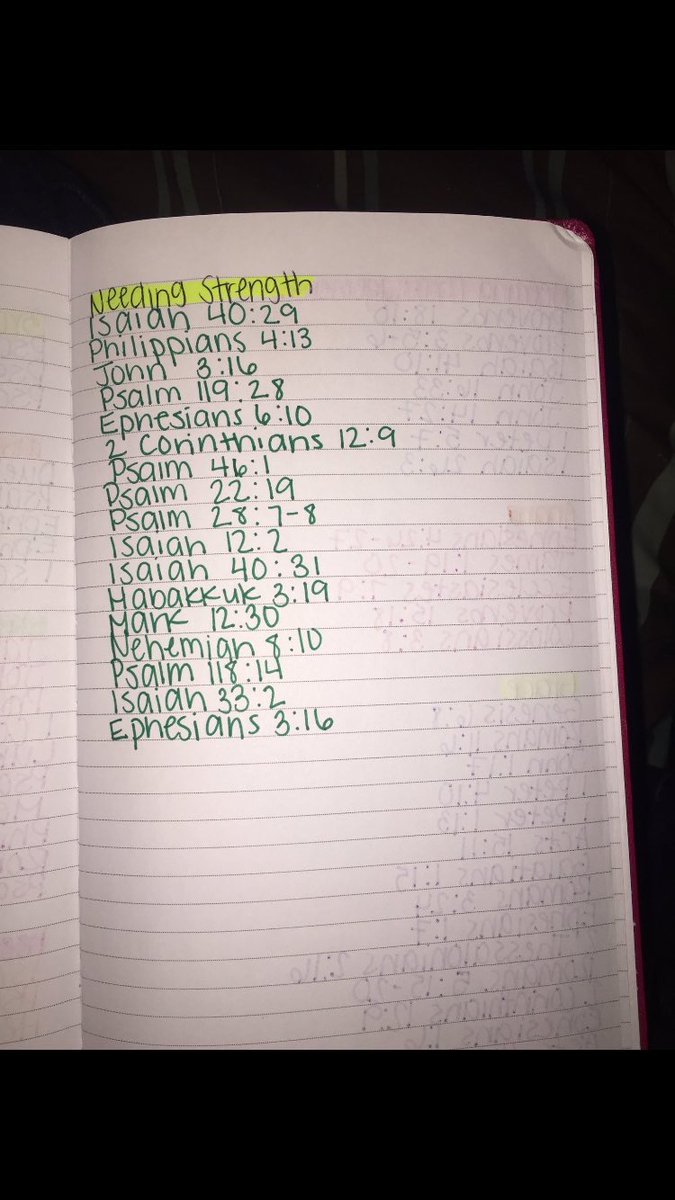 Needing Strength
Isaiah 40:29
Philippians 4:13
John 3:16
Psalm 119:28
Ephesians 6:10
2 Corinthians 12:9
Psalm 46:1
Psalm 22:19
Psalm 28:7-8
Isaiah 12:2
Isaiah 40:31
Habakkuk 3:19
Mark 12:30
Nehemiah 8:10
Psalm 118:14
Isaiah 33:2
Ephesians 3:16